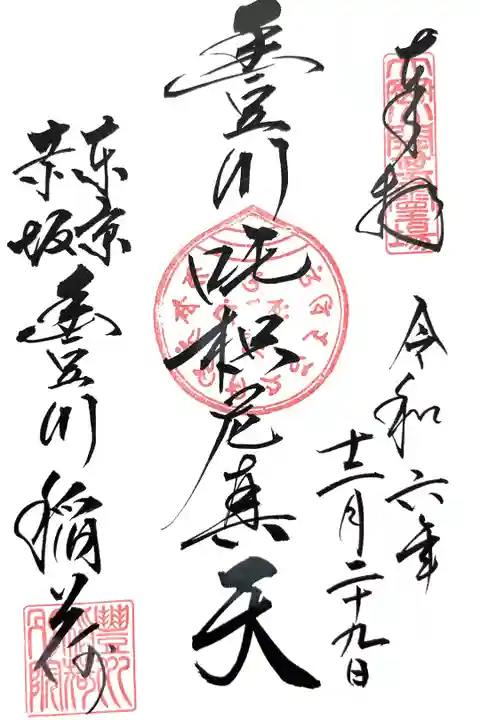 奉拝
令和六年
十二月二十九日
豊川
吒枳尼真天
東京
赤坂
豊川稲荷